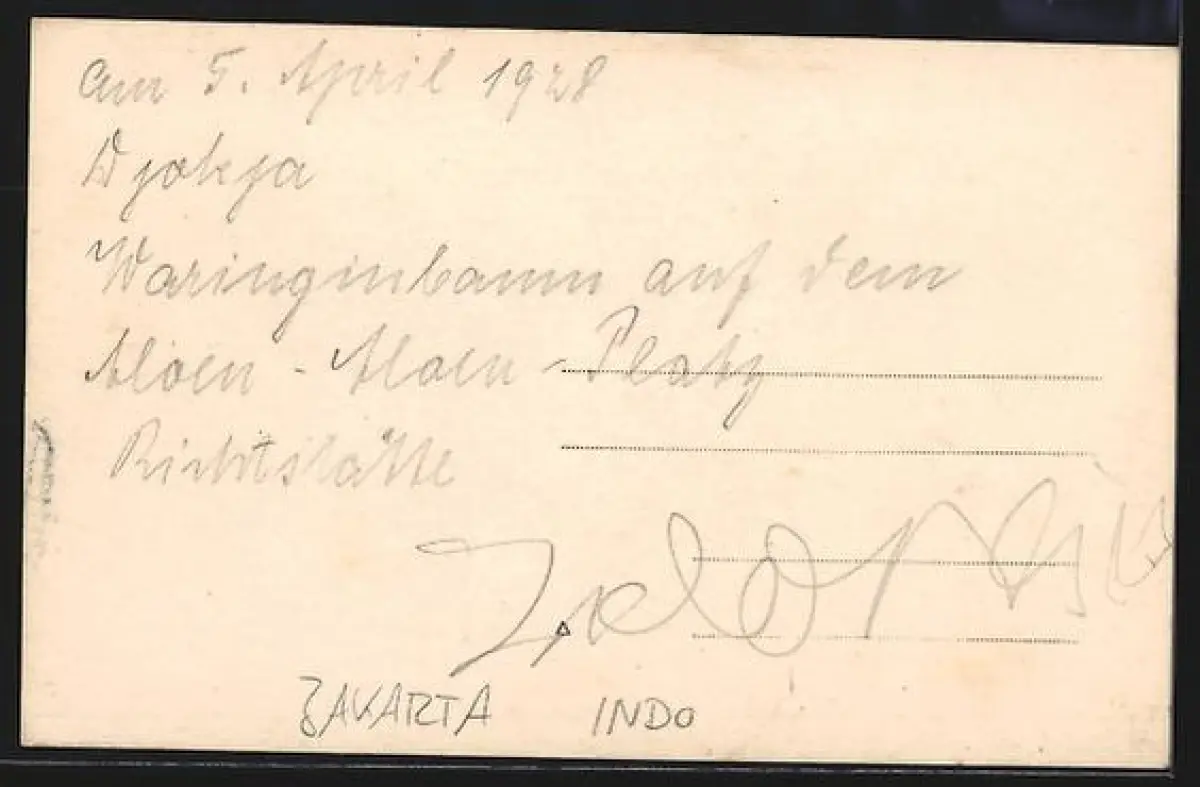 Am 5. April 1928
Djokja
Waringinbaum auf dem
Aloen - Aloen - Platz
Richtstätte
ZAKARTA INDO